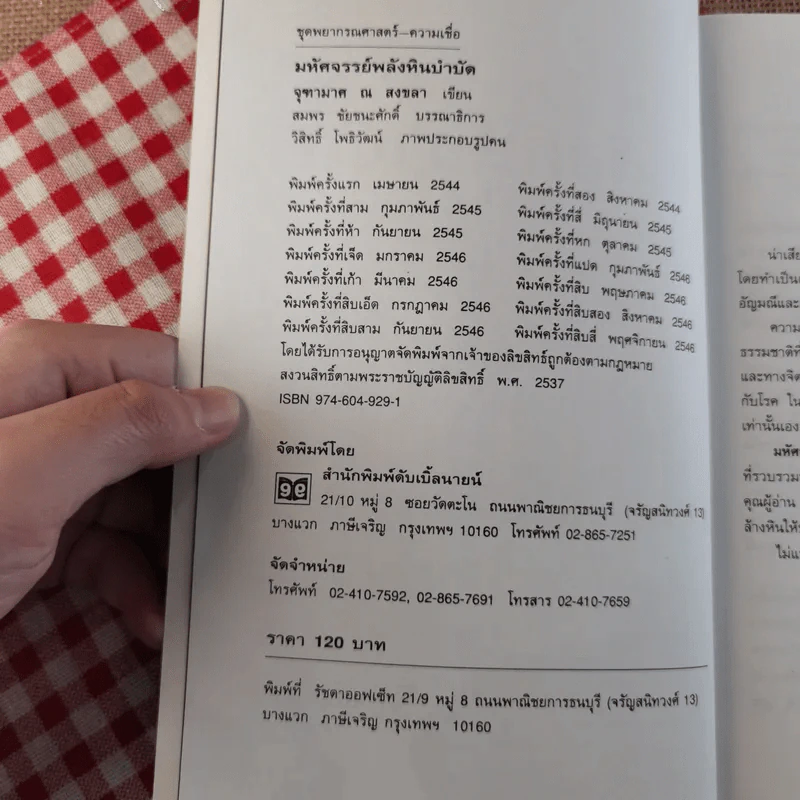 ชุดพยากรณศาสตร์–ความเชื่อ
มหัศจรรย์พลังหินบำบัด
จุฑามาศ ณ สงขลา เขียน
สมพร ชัยชนะศักดิ์ บรรณาธิการ
วิสิทธิ์ โพธิวัฒน์ ภาพประกอบรูปคน
พิมพ์ครั้งแรก เมษายน 2544 พิมพ์ครั้งที่สอง สิงหาคม 2544
พิมพ์ครั้งที่สาม กุมภาพันธ์ 2545 พิมพ์ครั้งที่สี่ มิถุนายน 2545
พิมพ์ครั้งที่ห้า กันยายน 2545 พิมพ์ครั้งที่หก ตุลาคม 2545
พิมพ์ครั้งที่เจ็ด มกราคม 2546 พิมพ์ครั้งที่แปด กุมภาพันธ์ 2546
พิมพ์ครั้งที่เก้า มีนาคม 2546 พิมพ์ครั้งที่สิบ พฤษภาคม 2546
พิมพ์ครั้งที่สิบเอ็ด กรกฎาคม 2546 พิมพ์ครั้งที่สิบสอง สิงหาคม 2546
พิมพ์ครั้งที่สิบสาม กันยายน 2546 พิมพ์ครั้งที่สิบสี่ พฤศจิกายน 2546
โดยได้รับการอนุญาตจัดพิมพ์จากเจ้าของลิขสิทธ์ถูกต้องตามกฎหมาย
สงวนสิทธิ์ตามพระราชบัญญัติลิขสิทธิ์ พ.ศ. 2537
ISBN 974-604-929-1
จัดพิมพ์โดย
สำนักพิมพ์ดับเบิ้ลนายน์
21/10 หมู่ 8 ซอยวัดตะโน ถนนพาณิชยการธนบุรี (จรัญสนิทวงศ์ 13)
บางแวก ภาษีเจริญ กรุงเทพฯ 10160 โทรศัพท์ 02-865-7251
จัดจำหน่าย
โทรศัพท์ 02-410-7592, 02-865-7691 โทรสาร 02-410-7659
ราคา 120 บาท
พิมพ์ที่ รัชดาออฟเซ็ท 21/9 หมู่ 8 ถนนพาณิชยการธนบุรี (จรัญสนิทวงศ์ 13)
บางแวก ภาษีเจริญ กรุงเทพฯ 10160
น่าเสีย
โดยทำเป็น
อัญมณีและ
ความ
ธรรมชาติที่
และทางจิต
กับโรค ใน
เท่านั้นเอง
มหัศ
ที่รวบรวม
คุณผู้อ่าน
ล้างหินให้
ไม่แ